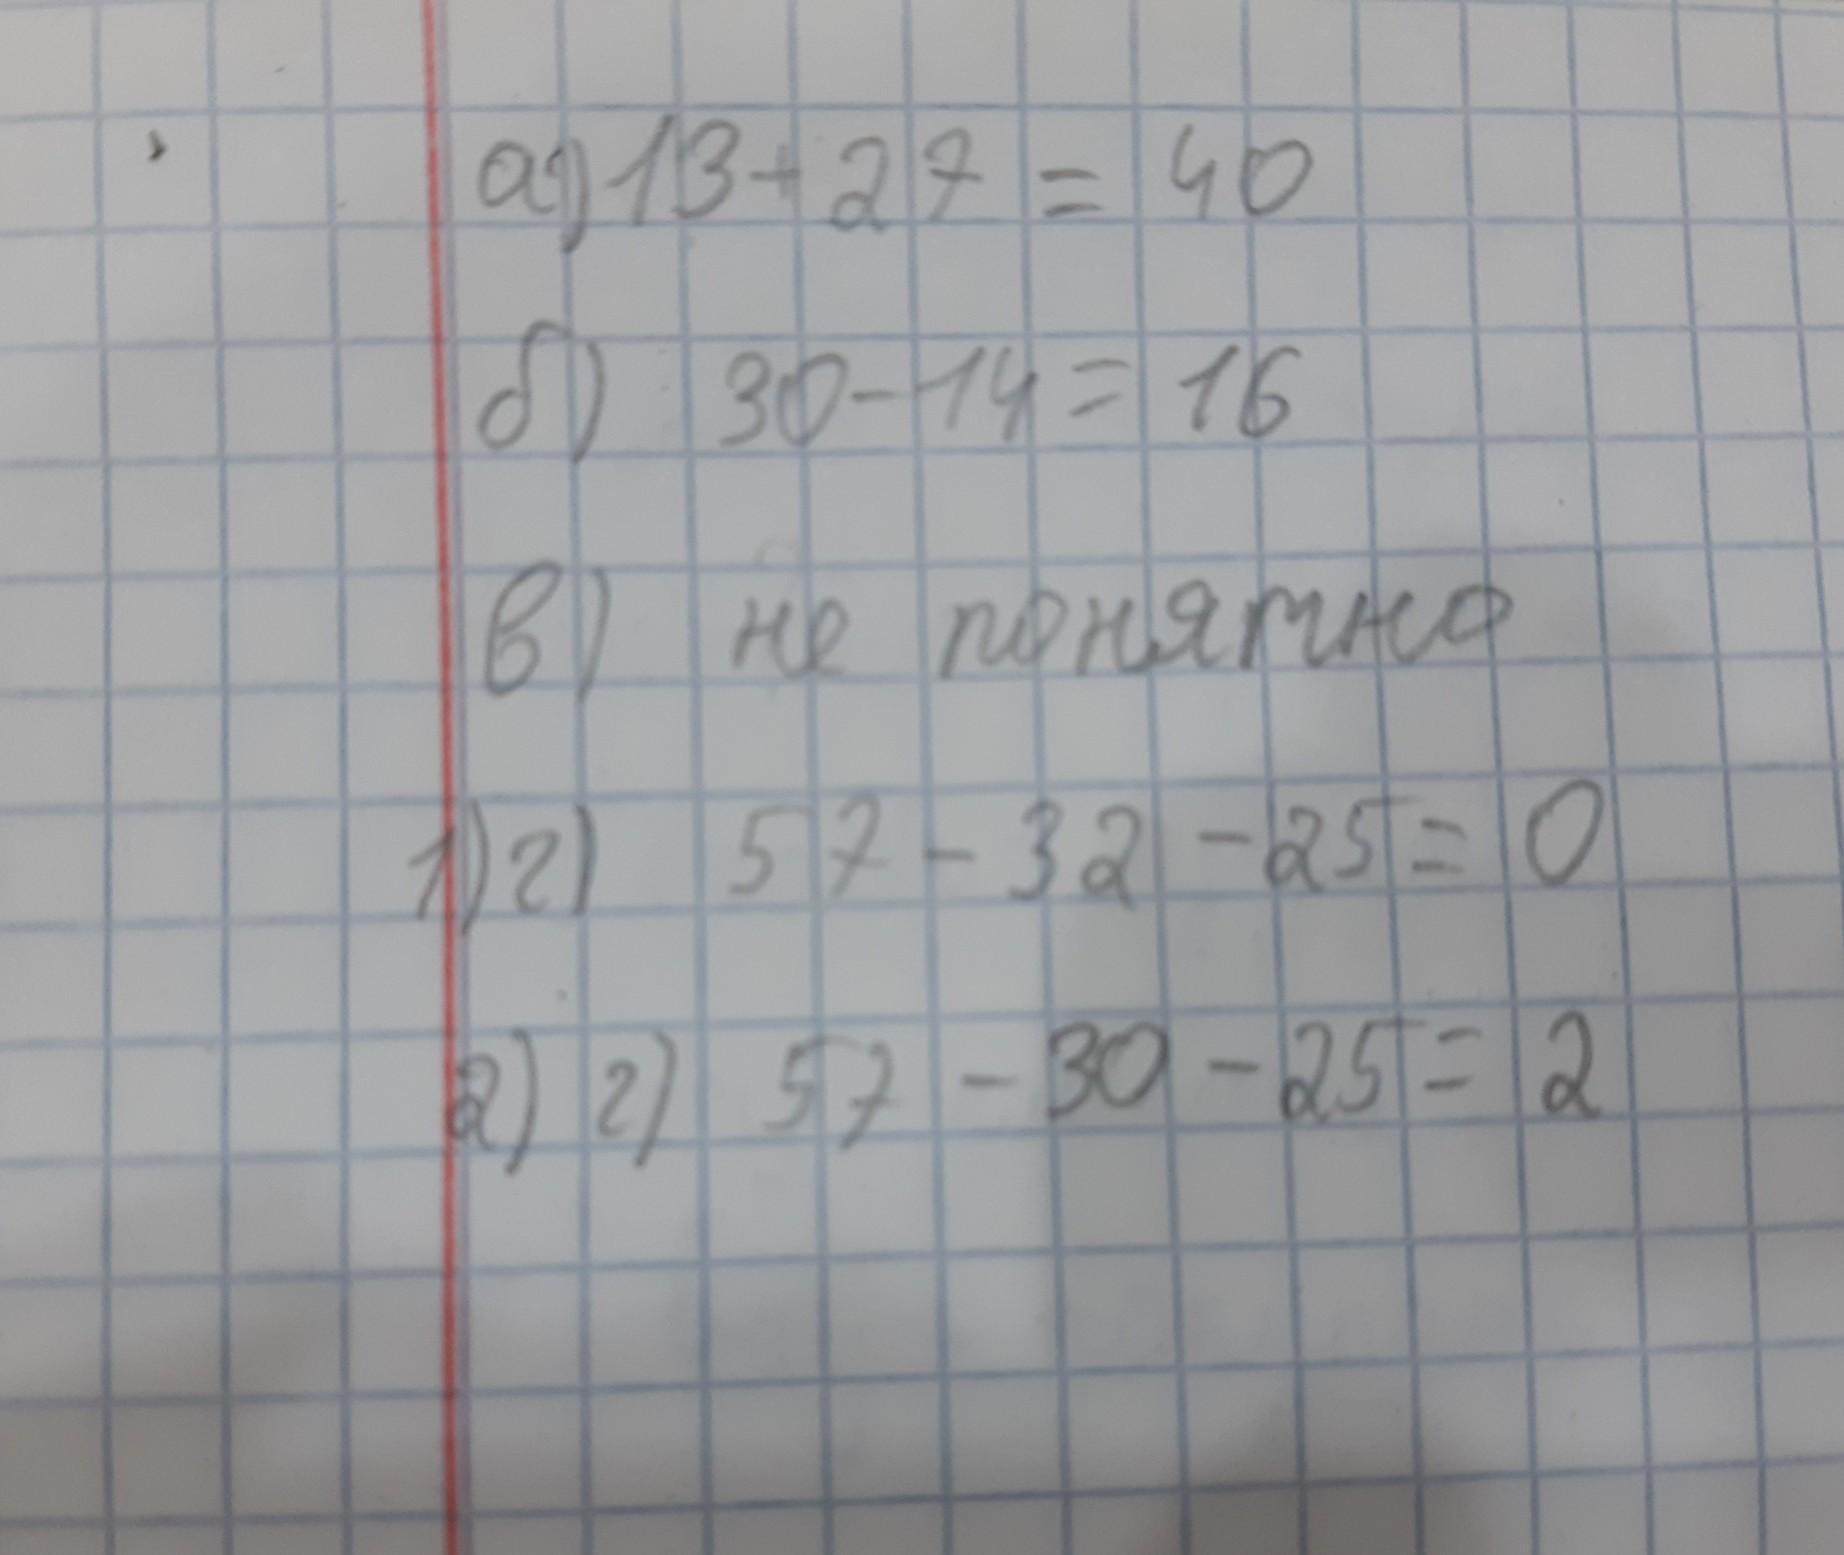 а) 13 + 27 = 40
б) 30 - 14 = 16
в) не понятно
1) г) 57 - 32 - 25 = 0
2) г) 57 - 30 - 25 = 2